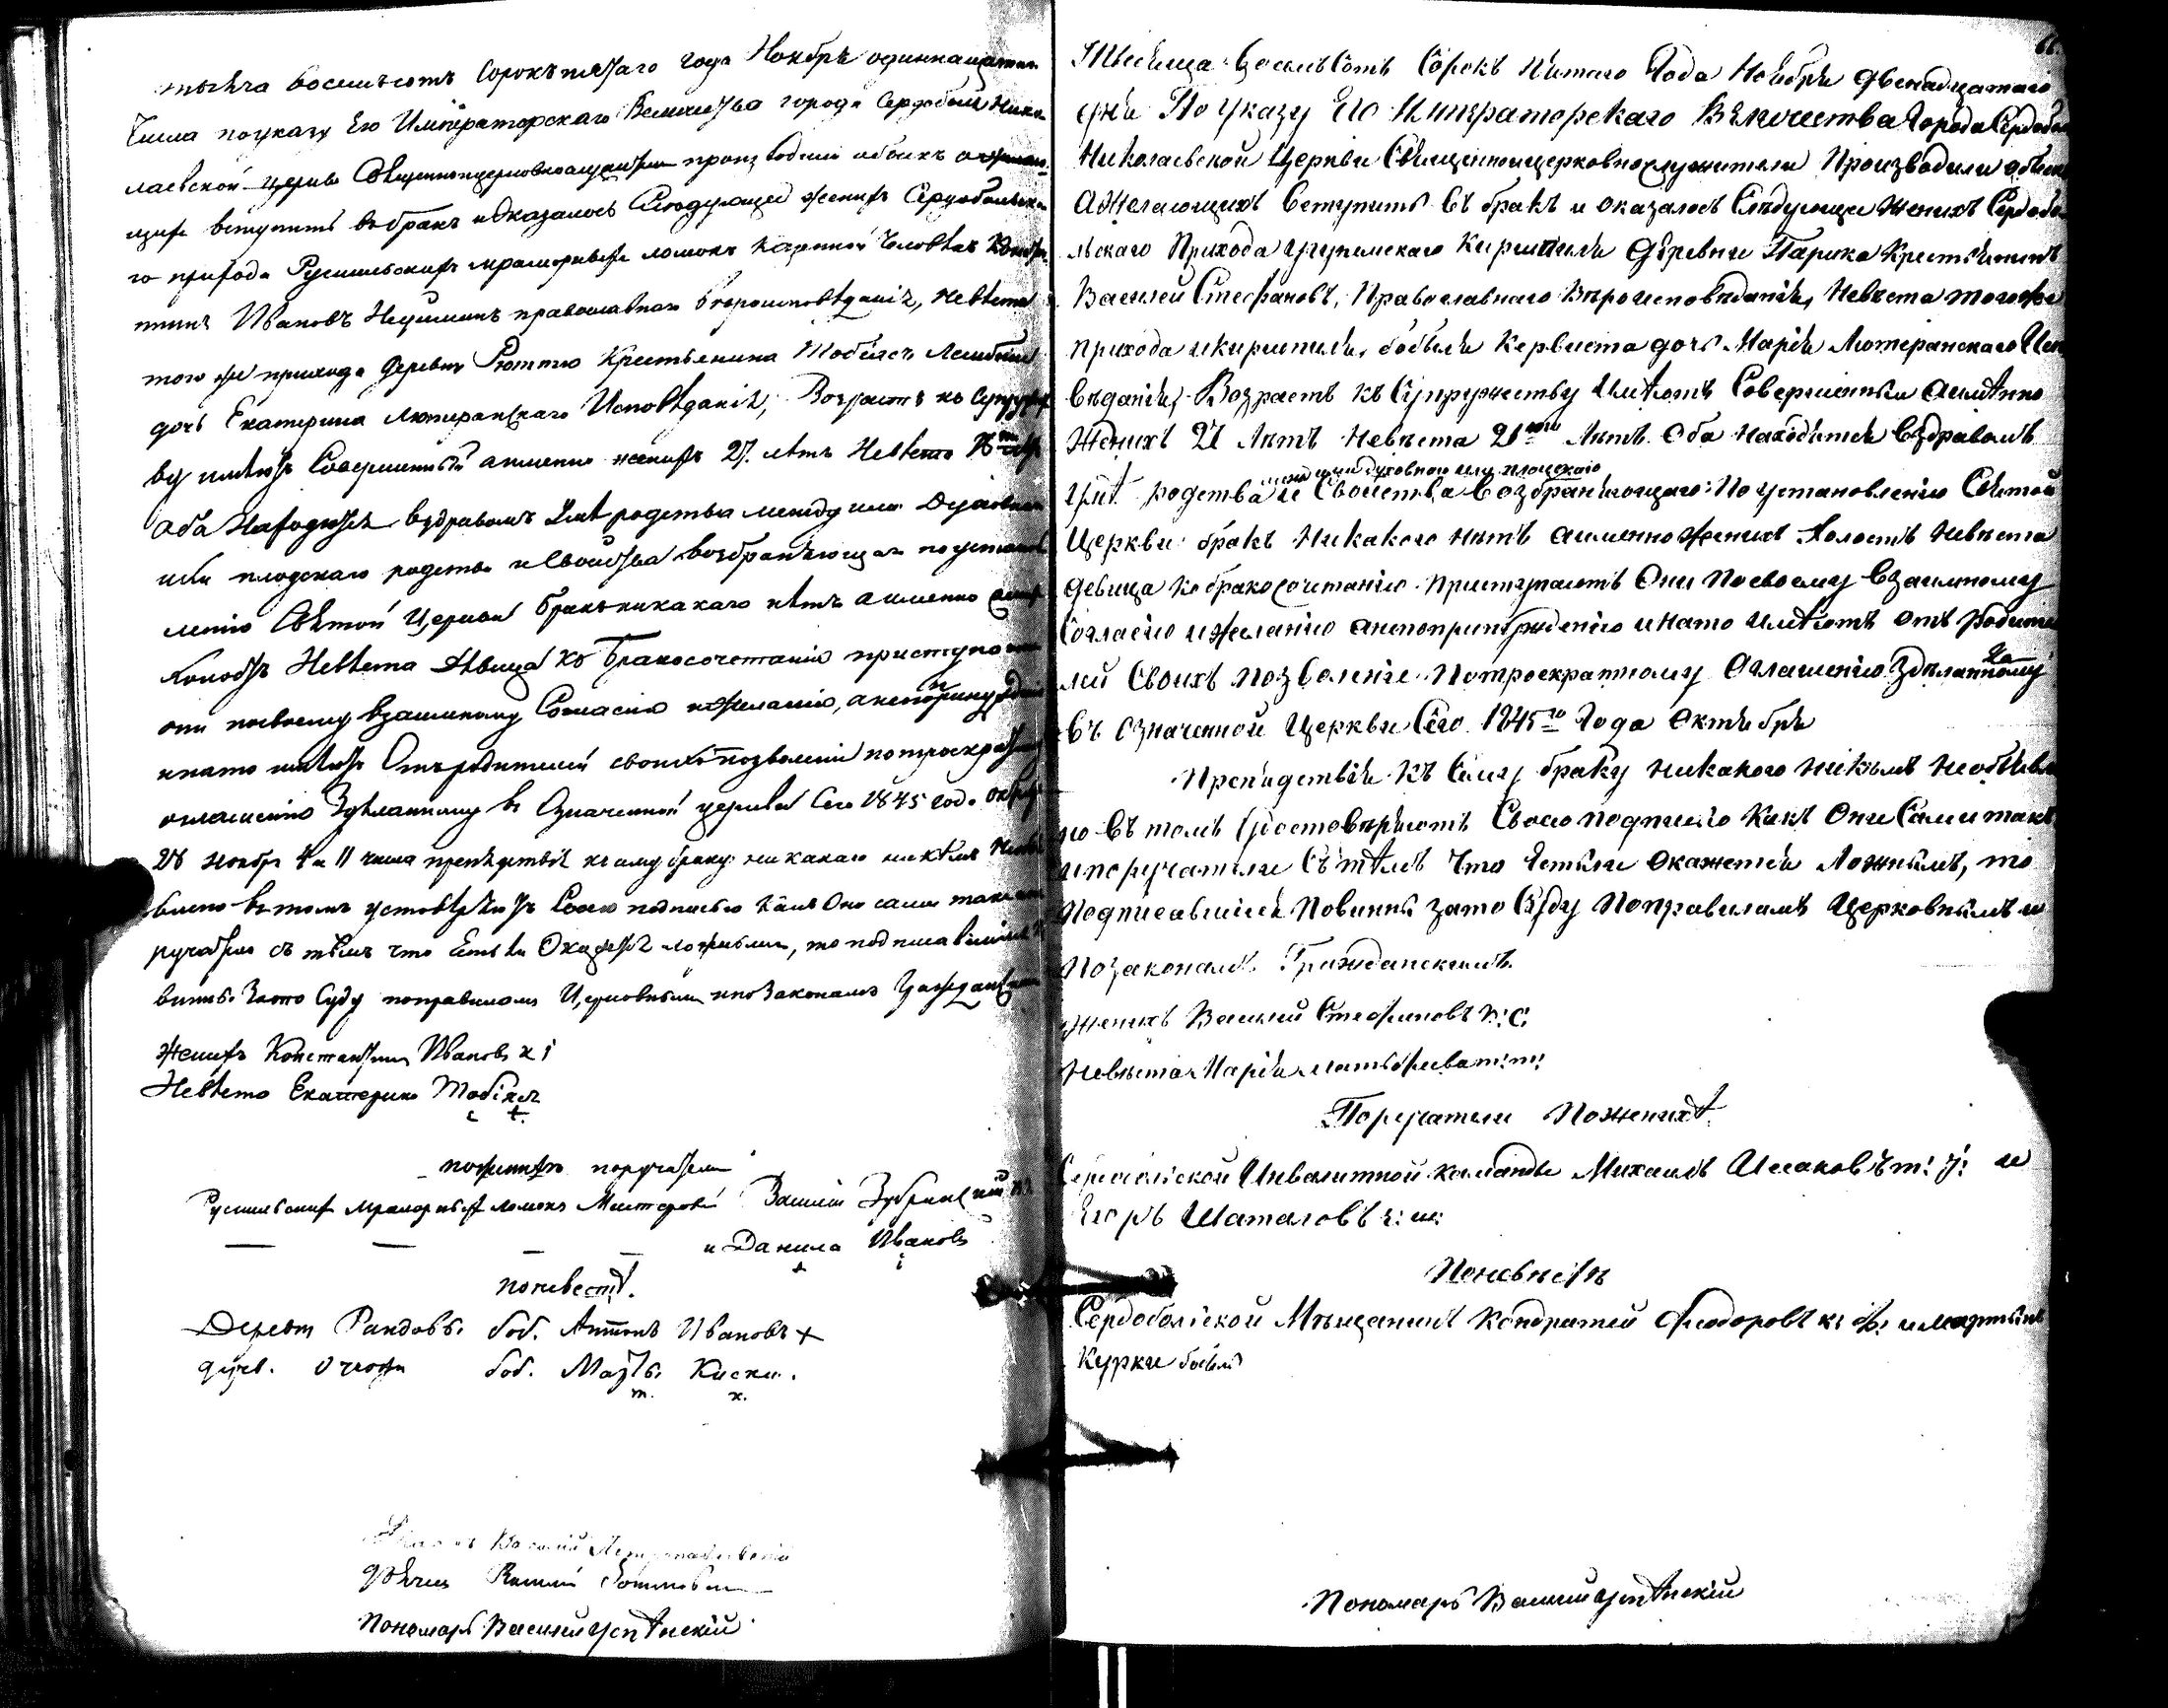 тысяча восемьсотъ Сорокъ пятаго года Ноября одиннацатаго
Числа по указу Его Императорскаго Величества города Сердоболя Нико
лаевской церкви Священноцерковнослужители производили обыскъ о желаю
щихъ вступить въ бракъ и Оказалось Слѣдующее женихъ Сердобольска
го прихода Рускильскихъ мраморныхъ ломокъ казенной Человѣкъ Констан
тинъ Ивановъ православнаго вѣроисповѣданія, Невѣста
того же прихода деревни Рюттю Крестьянина Тобіаса
дочь Екатерина лютеранскаго Исповѣданія, Возрастъ къ Супружест
ву имѣютъ Совершенный а именно женихъ 27. лѣтъ Невѣста
оба Находятся въ здравомъ умѣ родства между ими Духовнаго
или плодскаго родства и Свойства возбраняющаго по установ
ленію Святой Церкви бракъ никакаго нѣтъ а именно женихъ
холостъ Невѣста Дѣвица къ бракосочетанію приступаютъ
они посвоему взаимному Согласію и желанію, а непопринужденію
и нато имѣютъ Отъ родителей своихъ позволеніе потроекратному
оглашенію Здѣланному въ Означенной церкви Сего 1845 года Октября
28 ноября 4 и 11 числа препятствія къ сему браку никакаго никѣмъ Необъя
влено въ томъ устовѣряютъ Своею подписью какъ Они сами такъ и по
ручатели съ тѣмъ что Естьли Окажется ложнымъ, то подписавшіися по
винны Зато Суду поправиламъ Церковнымъ и по Законамъ Гражданскимъ
Женихъ Константинъ Ивановъ к і
Невѣста Екатерина Тобіасъ
поженихѣ поручатели
Рускильскихъ мраморныхъ ломокъ Мастеровой Василій
и Данила Ивановъ
поневестѣ.
Деревни боб. Антонъ Ивановъ +
дерев. боб. Матвѣ. Киски.
т. к.
Василій
Дьячекъ Василій
Пономарь Василей Успѣнскій

Тысяща Восемьсотъ Сорокъ Пятаго Года Ноября двенадцатаго
дня По Указу Его Императорскаго Величества Города Сердобол
Николаевской Церкви Священноцерковнослужители Производили обыск
О Желающихъ Вступить Въ бракъ и оказалось Слѣдующее Женихъ Сердобо
льскаго Прихода Кирхшпиля Деревни Парика Крестьянинъ
Василей Стефановъ, Православнаго Вѣроисповѣданія, Невѣста тогоже
Прихода и кирхшпиля, бобыля Кервиста дочь Марія Лютеранскаго Исп
вѣданія, Возрастъ къ Супружеству Имѣютъ Совершенный а имянно
Женихъ 21 Лѣтъ Невѣста 21 Лѣтъ Оба Находятся Въздравомъ
между ими духовнаго или плоцкаго
Умѣ родства и Свойства Возбраняющаго По установленію Святой
Церкви бракъ Никакаго нѣтъ а именно Женихъ Холостъ Невѣста
девица Къ бракосочетанію Приступаютъ Они Посвоему Взаимному
Согласію и Желанію анепопринужденію и нато имѣютъ отъ Родите
лей Своихъ Позволеніе Потроекратному Оглашенію Здѣланному
Въ означенной Церкви Сего 1845го Года Октября
Препядствія Къ Сему браку никакого никѣмъ необъявле
но Въ томъ Удостовѣряютъ Своею подписью Какъ Они Сами такъ
и поручатели Съ тѣмъ Что Естьли Окажется Ложнымъ, то
Подписавшіися Повинны зато Суду Поправиламъ Церковнымъ и
Позаконамъ Гражданскимъ.
Женихъ Василей Стефановъ в: с:
Невѣста Марія
Поручатели Поженихѣ
Сердобольской Инвалитной команды Михаилъ Исаковъ и
Егоръ Шаталовъ
Поневѣстѣ
Сердобольской Мѣщанинъ Кондратей Феодоровъ к: ф: и мартынъ
Курки бобыль
Пономарь Василий Успѣнскій